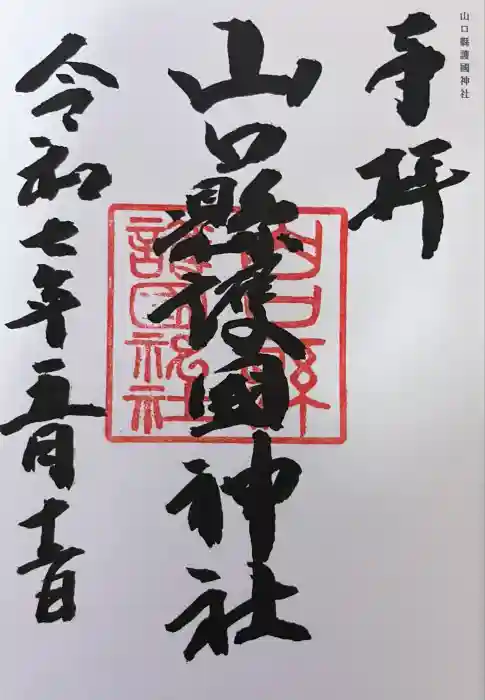 山口縣護國神社
奉拝
山口縣護國神社
山口縣
護國神社
令和七年五月十一日